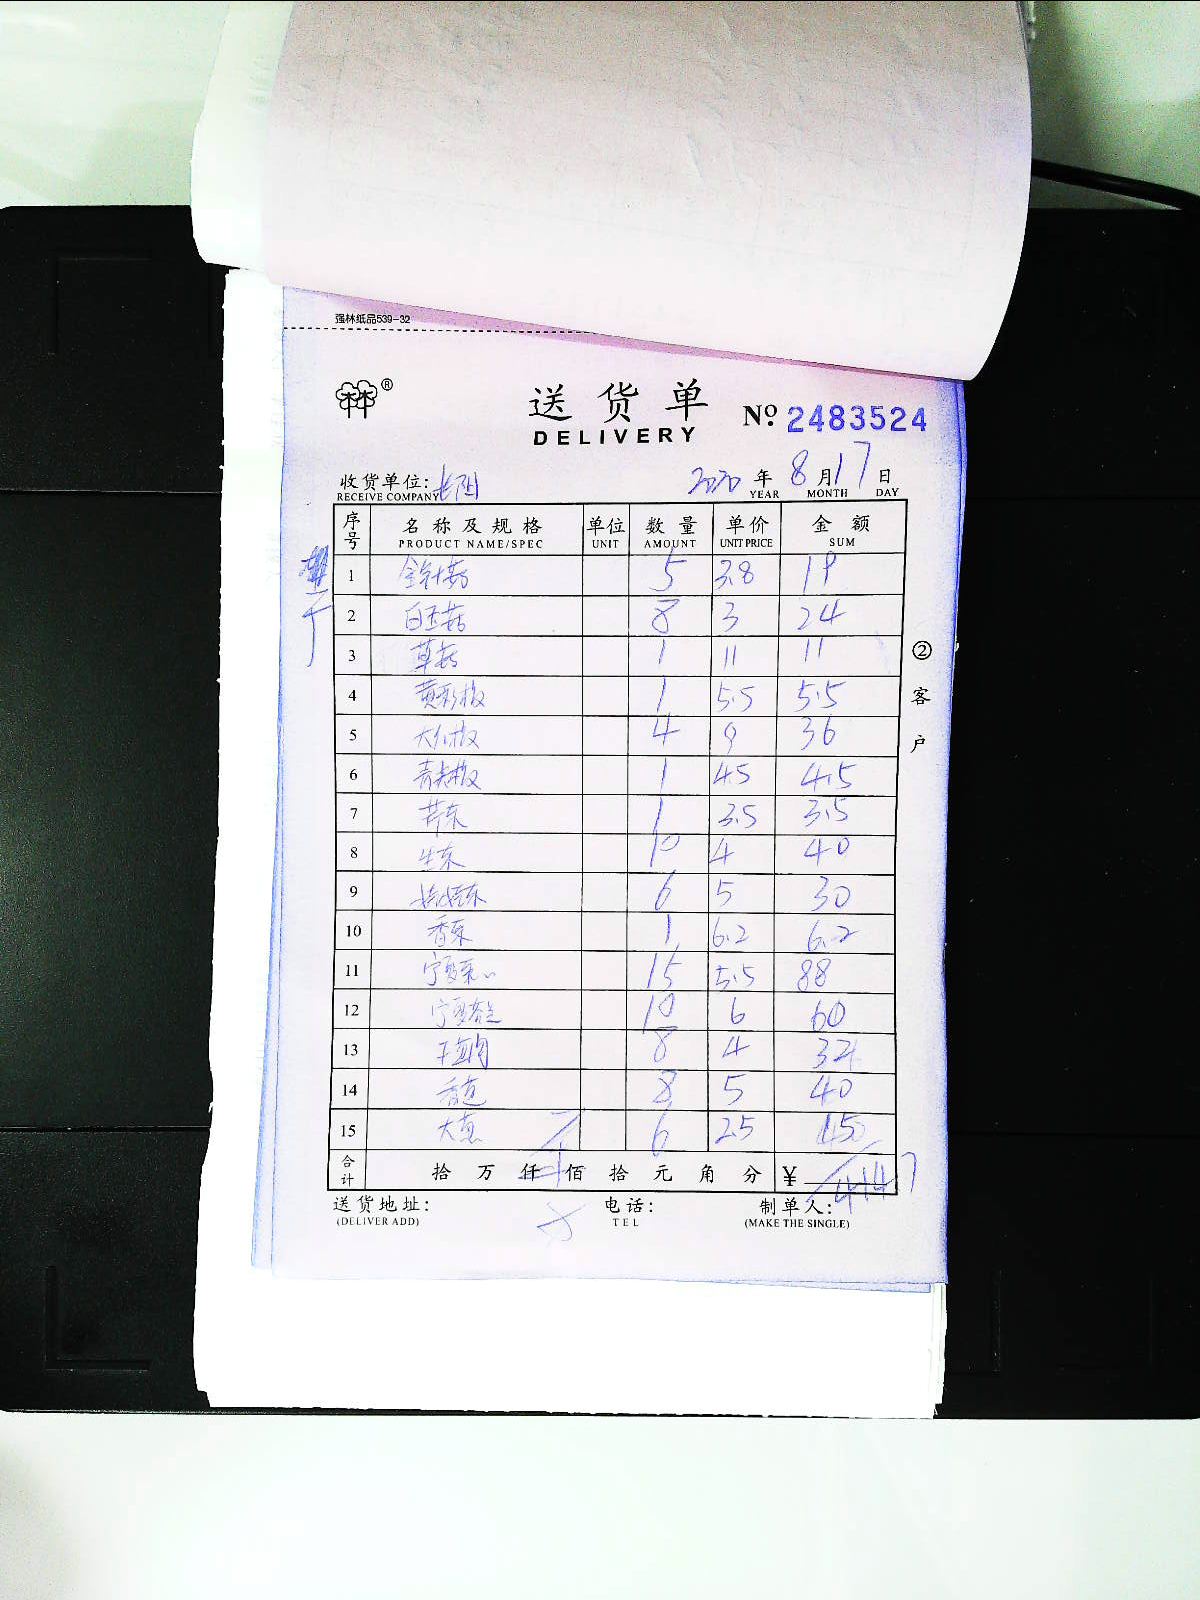 强林纸品539-32
林 ®
送货单
DELIVERY
№ 2483524
收货单位:长阳 2020 年 8 月 17 日
RECEIVE COMPANY YEAR MONTH DAY
序号 名称及规格 单位 数量 单价 金额
PRODUCT NAME/SPEC UNIT AMOUNT UNIT PRICE SUM
1 金针菇 5 3.8 19
2 白玉菇 8 3 24
3 草菇 1 11 11
4 黄彩椒 1 5.5 5.5
5 大红椒 4 9 36
6 青尖椒 1 4.5 4.5
7 芹菜 1 3.5 3.5
8 生菜 10 4 40
9 6 5 30
10 香菜 1 6.2 6.2
11 宁夏菜心 15 5.5 88
12 宁夏 10 6 60
13 8 4 32
14 香芝 8 5 40
15 大葱 6 2.5 150
合计 拾 万 仟 佰 拾 元 角 分 ¥
送货地址: 电话: 制单人:
(DELIVER ADD) TEL (MAKE THE SINGLE)
②客户